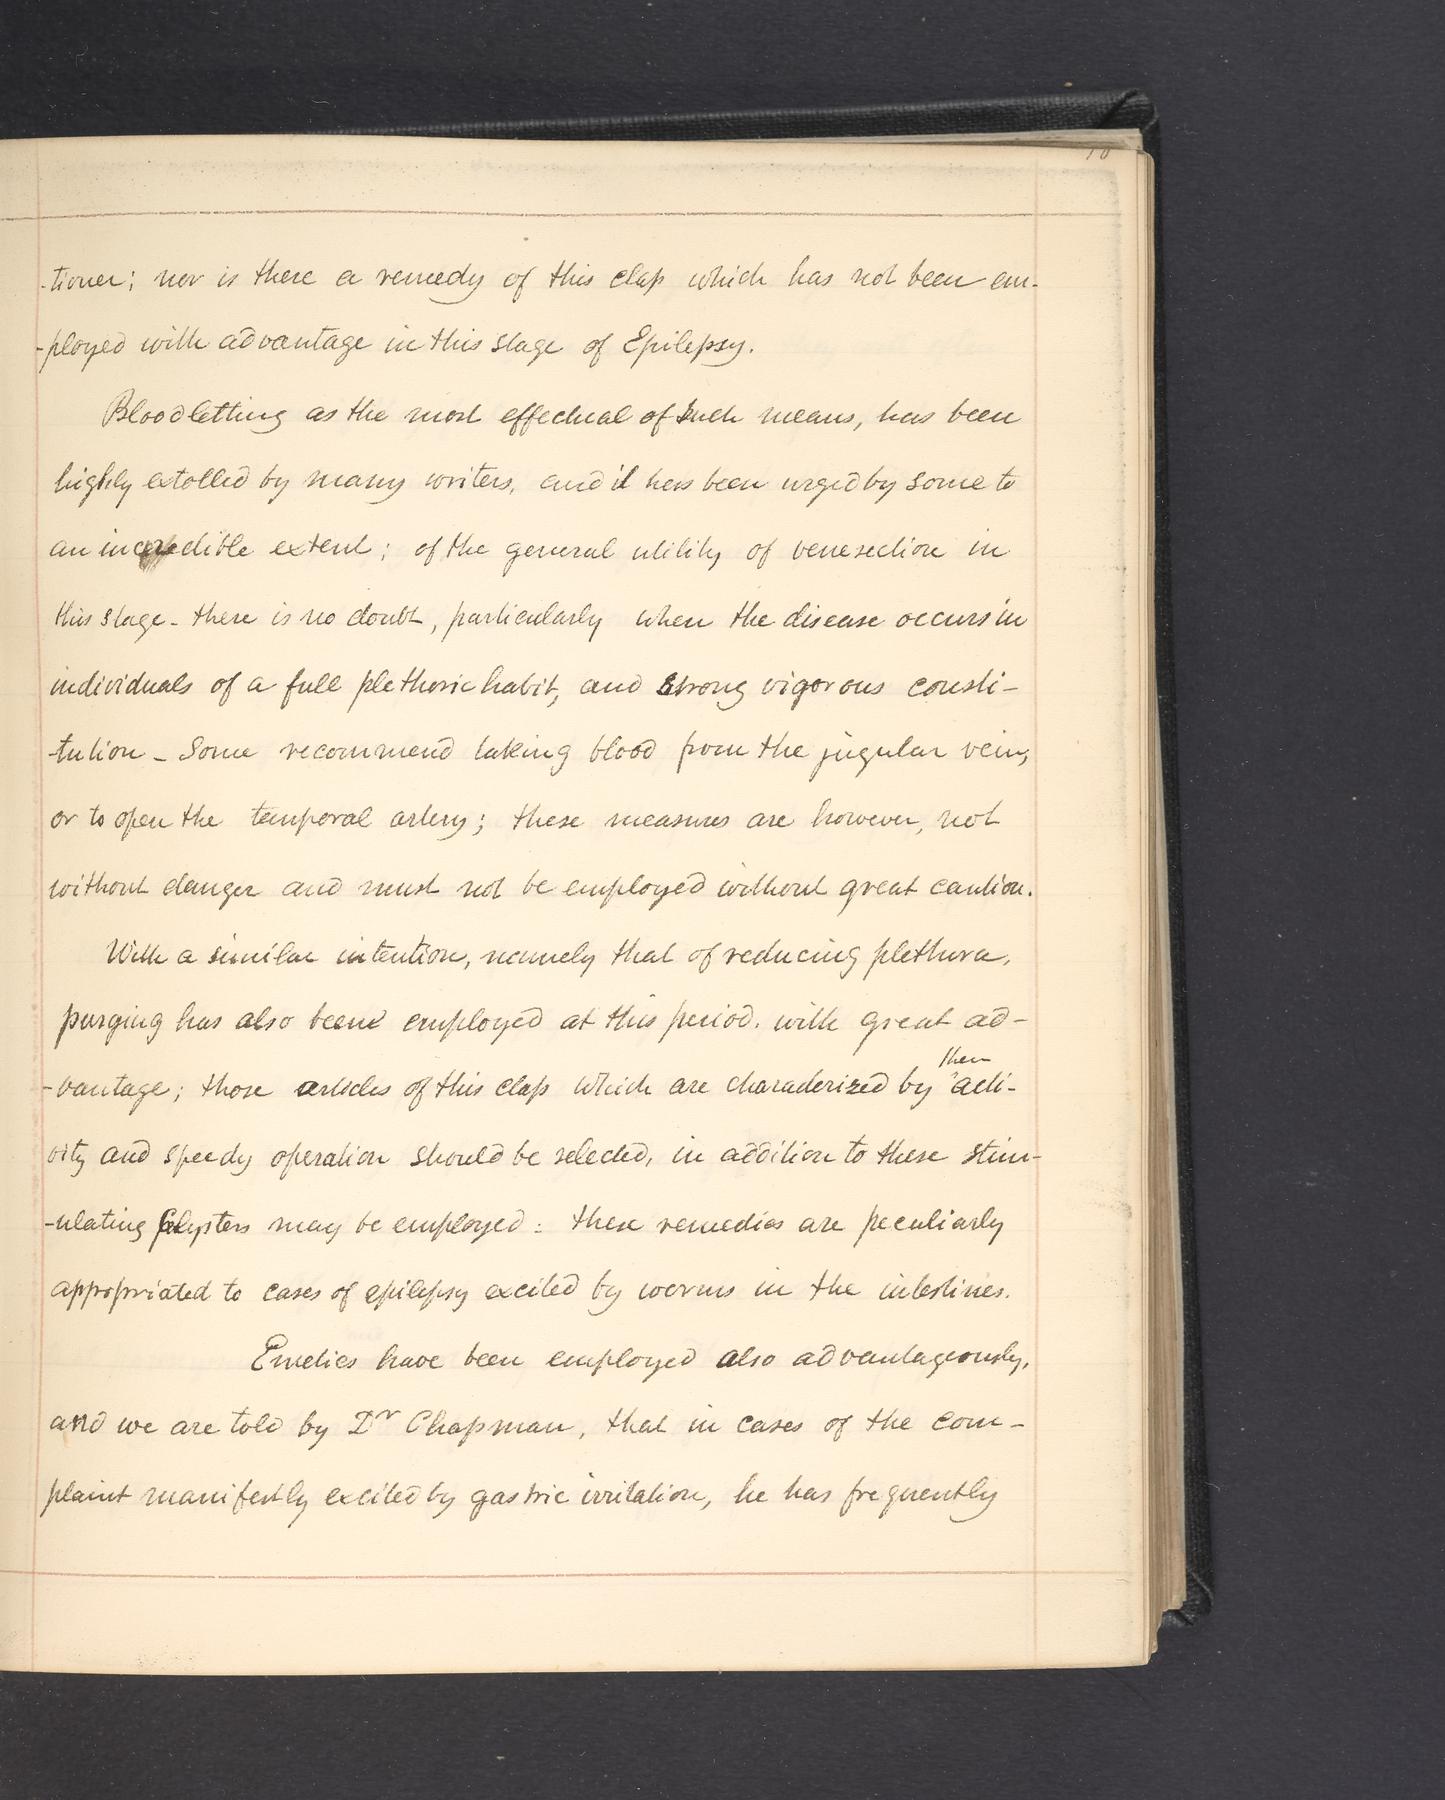 10
-tioner; nor is there a remedy of this class which has not been em-
-ployed with advantage in this stage of Epilepsy.
Bloodletting as the most effectual of such means, has been
highly extolled by many writers, and it has been urged by some to
an incredible extent; of the general utility of venesection in
this stage - there is no doubt, particularly when the disease occurs in
individuals of a full plethoric habit, and strong vigorous consti-
-tution - Some recommend taking blood from the jugular vein,
or to open the temporal artery; these measures are however, not
without danger and must not be employed without great caution.
With a similar intention, namely that of reducing plethora,
purging has also been employed at this period. with great ad-
-vantage; those articles of this class which are characterized by their acti-
vity and speedy operation should be selected, in addition to these stim-
-ulating glysters may be employed: these remedies are peculiarly
appropriated to cases of epilepsy excited by worms in the intestines.
Emetics have been employed also advantageously,
and we are told by Dr Chapman, that in cases of the com-
plaint manifestly excited by gastric irritation, he has frequently